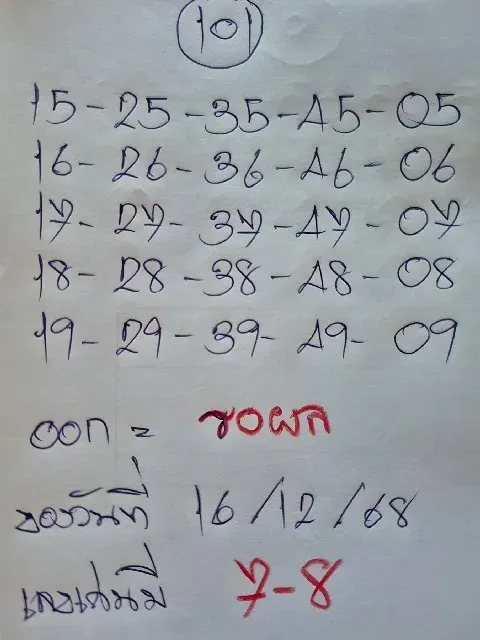 101
15-25-35-45-05
16-26-36-46-06
17-27-37-47-07
18-28-38-48-08
19-29-39-49-09
ออก = ขอผล
ของวันที่ 16/12/68
เลขเด่นมี 7-8